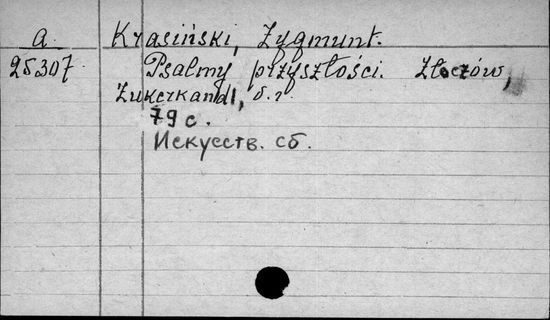 A   Krasiński, Zygmunt.
25307   Psalmy przyszłości. Złoczów,
Zukerkandl, б.г.
79 с.
Искусств. сб.